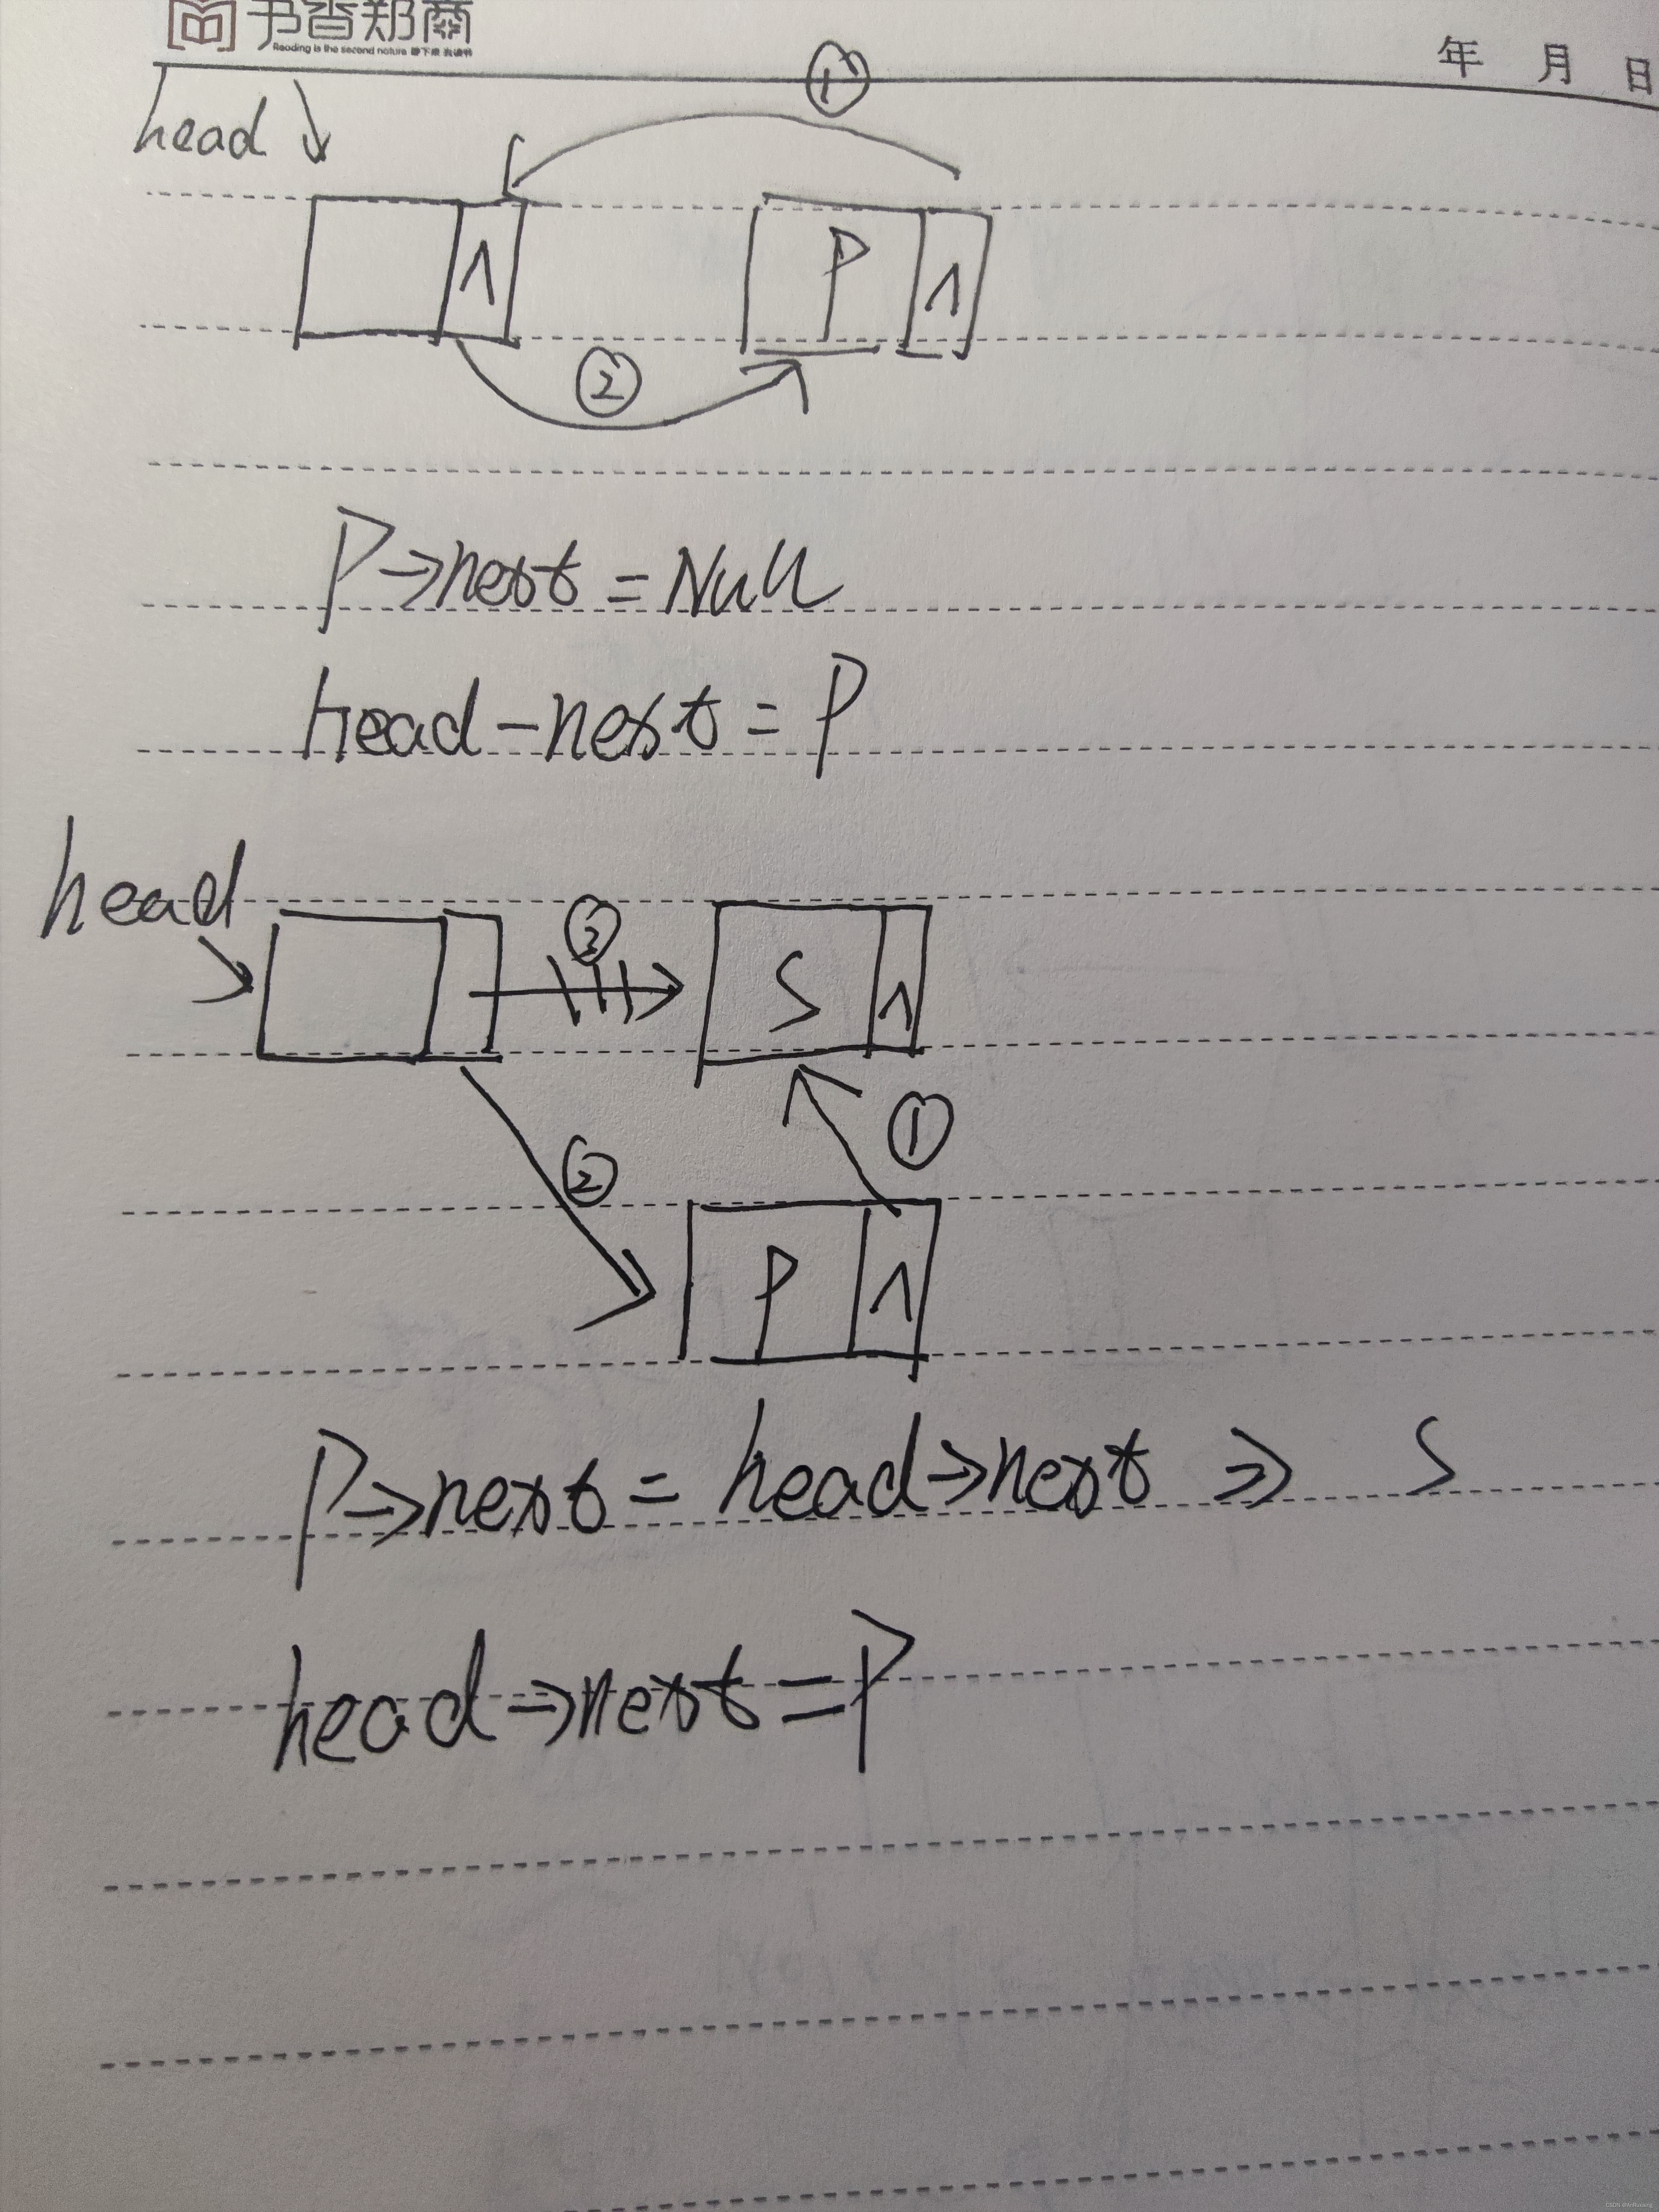 书香郑商
Reading is the second nature
年 月 日
①
head
∧ P ∧
②
P→next = Null
head-next = P
head
③
S ∧
①
②
P ∧
P→next = head→next ⇒ S
head→next = P